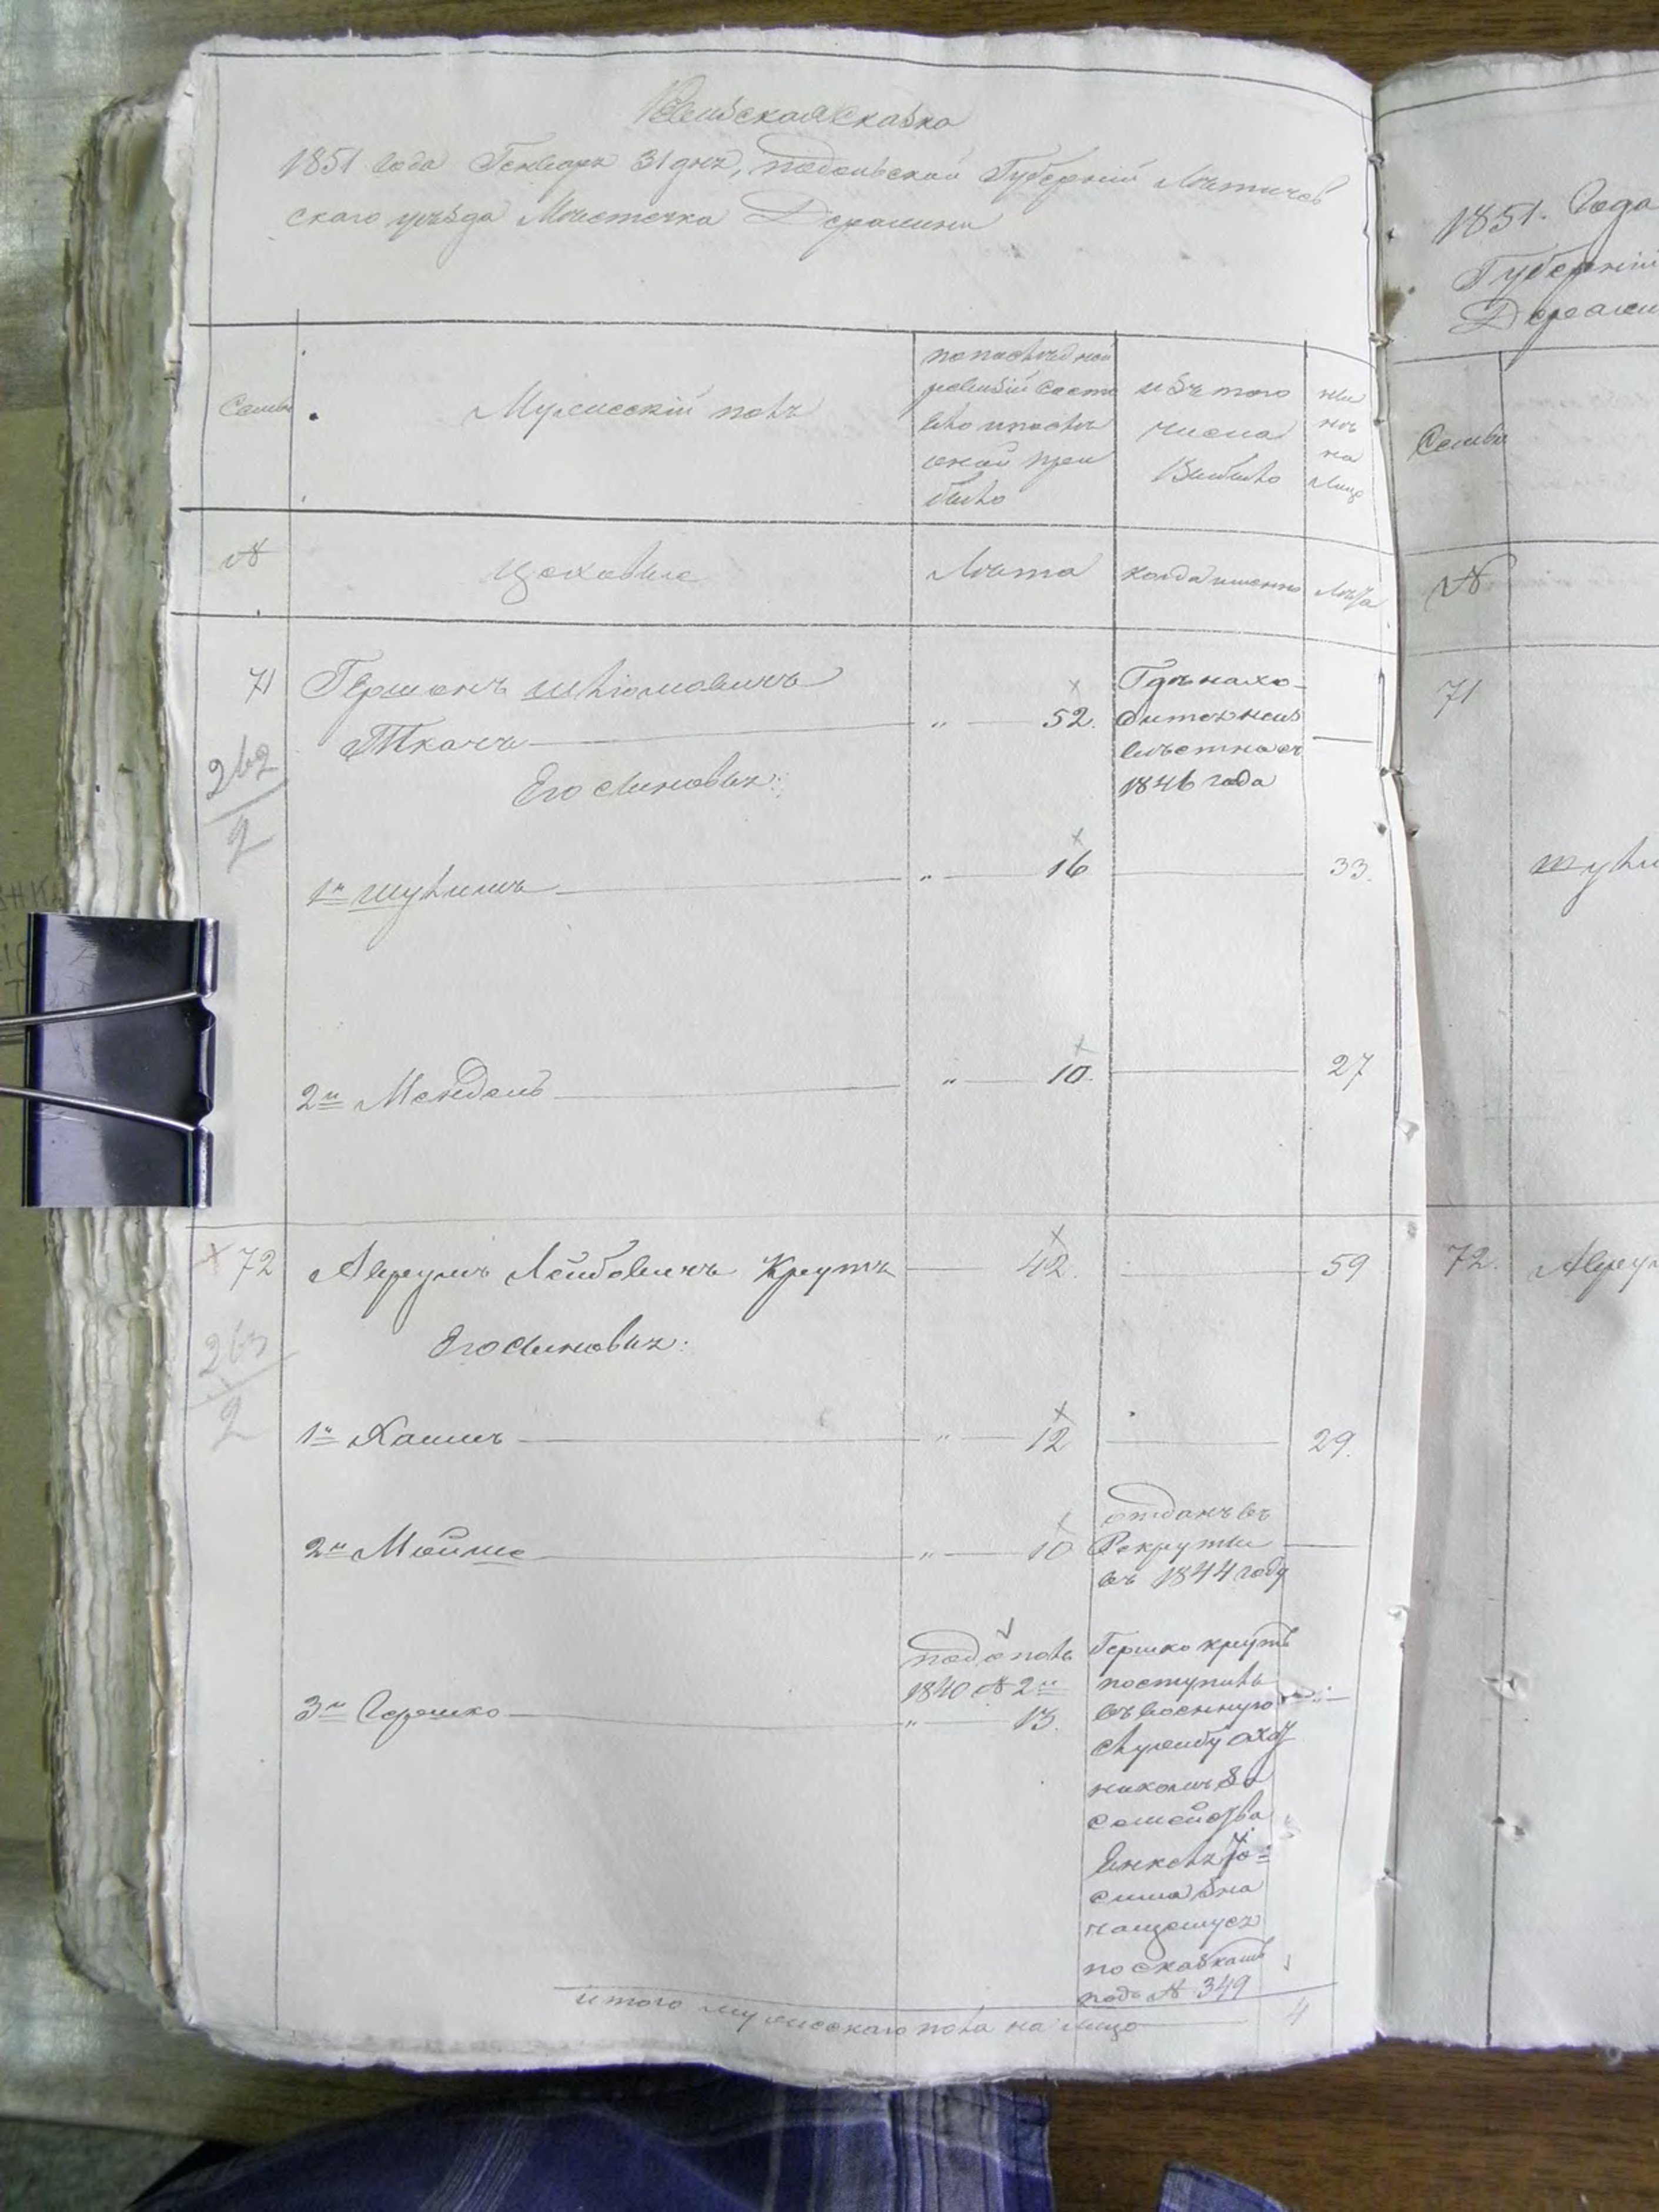 Ревизская сказка
1851 года Генваря 31 дня, подольской Губерніи Летичев
ского уезда Местечка Деражни
Семьи
Мужескій полъ
по последней
ревизіи состо
яло и после
оной при
было
изъ того
числа
Выбыло
ны
не
на
Лицо
№
Цеховые
Лета
когда именно
Лета
71
262
2
Гершонъ Шліомовичъ
Ткачъ
" 52.
Где нахо-
дится неиз
вестно съ
1846 года
Его сыновья:
1й Шулимъ " 16 33.
2й Мендель " 10. 27
72
263
2
Аврумъ Лейбовичъ Крутъ 42. 59
Его сыновья:
1й Хаимъ " 12 29.
2й Мойше " 10
отданъ въ
Рекруты
въ 1844 году
3й Гершко
1840 № 2й
" 13.
Гершко крутъ
поступилъ
въ военную
службу
семейства
по сказкамъ
подъ № 349
итого мужескаго пола на лицо 4
1851. Года
Губерніи
Семьи
№
71
72.